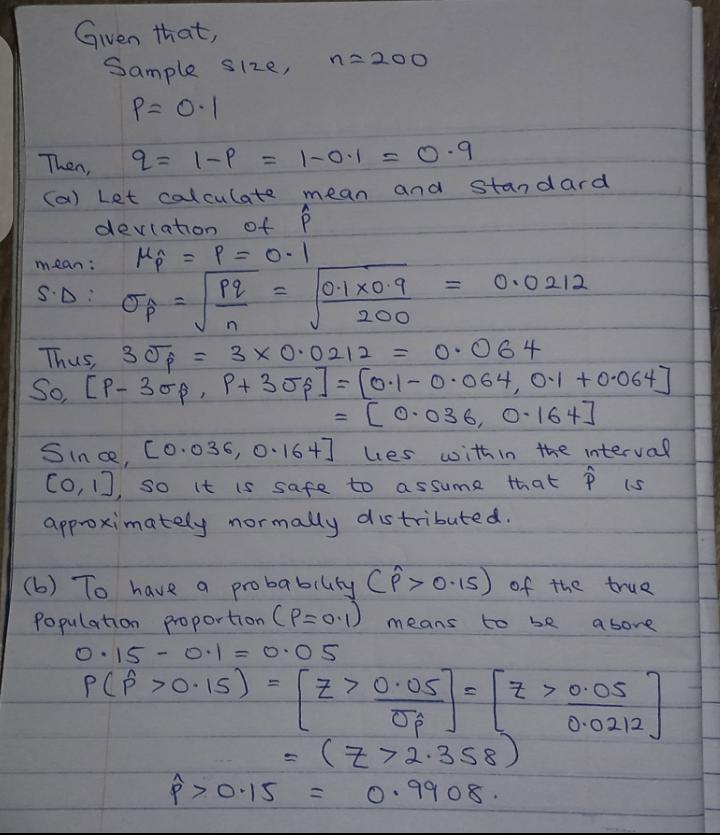 Given that,
Sample size, n=200
P= 0.1
Then, q= 1-P = 1-0.1 = 0.9
(a) Let calculate mean and standard
deviation of p̂
mean: μp̂ = P = 0.1
S.D: σp̂ = √(pq/n) = √(0.1×0.9/200) = 0.0212
Thus, 3σp̂ = 3 × 0.0212 = 0.064
So, [P- 3σp̂, P+ 3σp̂] = [0.1- 0.064, 0.1 + 0.064]
= [ 0.036, 0.164]
Since, [0.036, 0.164] lies within the interval
[0,1], so it is safe to assume that p̂ is
approximately normally distributed.
(b) To have a probability (p̂>0.15) of the true
Population proportion (P=0.1) means to be above
0.15 - 0.1 = 0.05
P(p̂ >0.15) = [Z > 0.05/σp̂] = [Z > 0.05/0.0212]
= (Z >2.358)
p̂ > 0.15 = 0.9908.